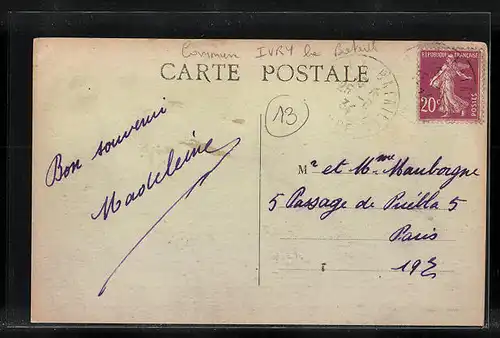 Commun IVRY la Bataille
CARTE POSTALE
REPUBLIQUE FRANÇAISE
20c
POSTES
13
Bon souvenir
Madeleine
Mr et Mme Mauborgne
5 Passage de Puella 5
Paris
19E